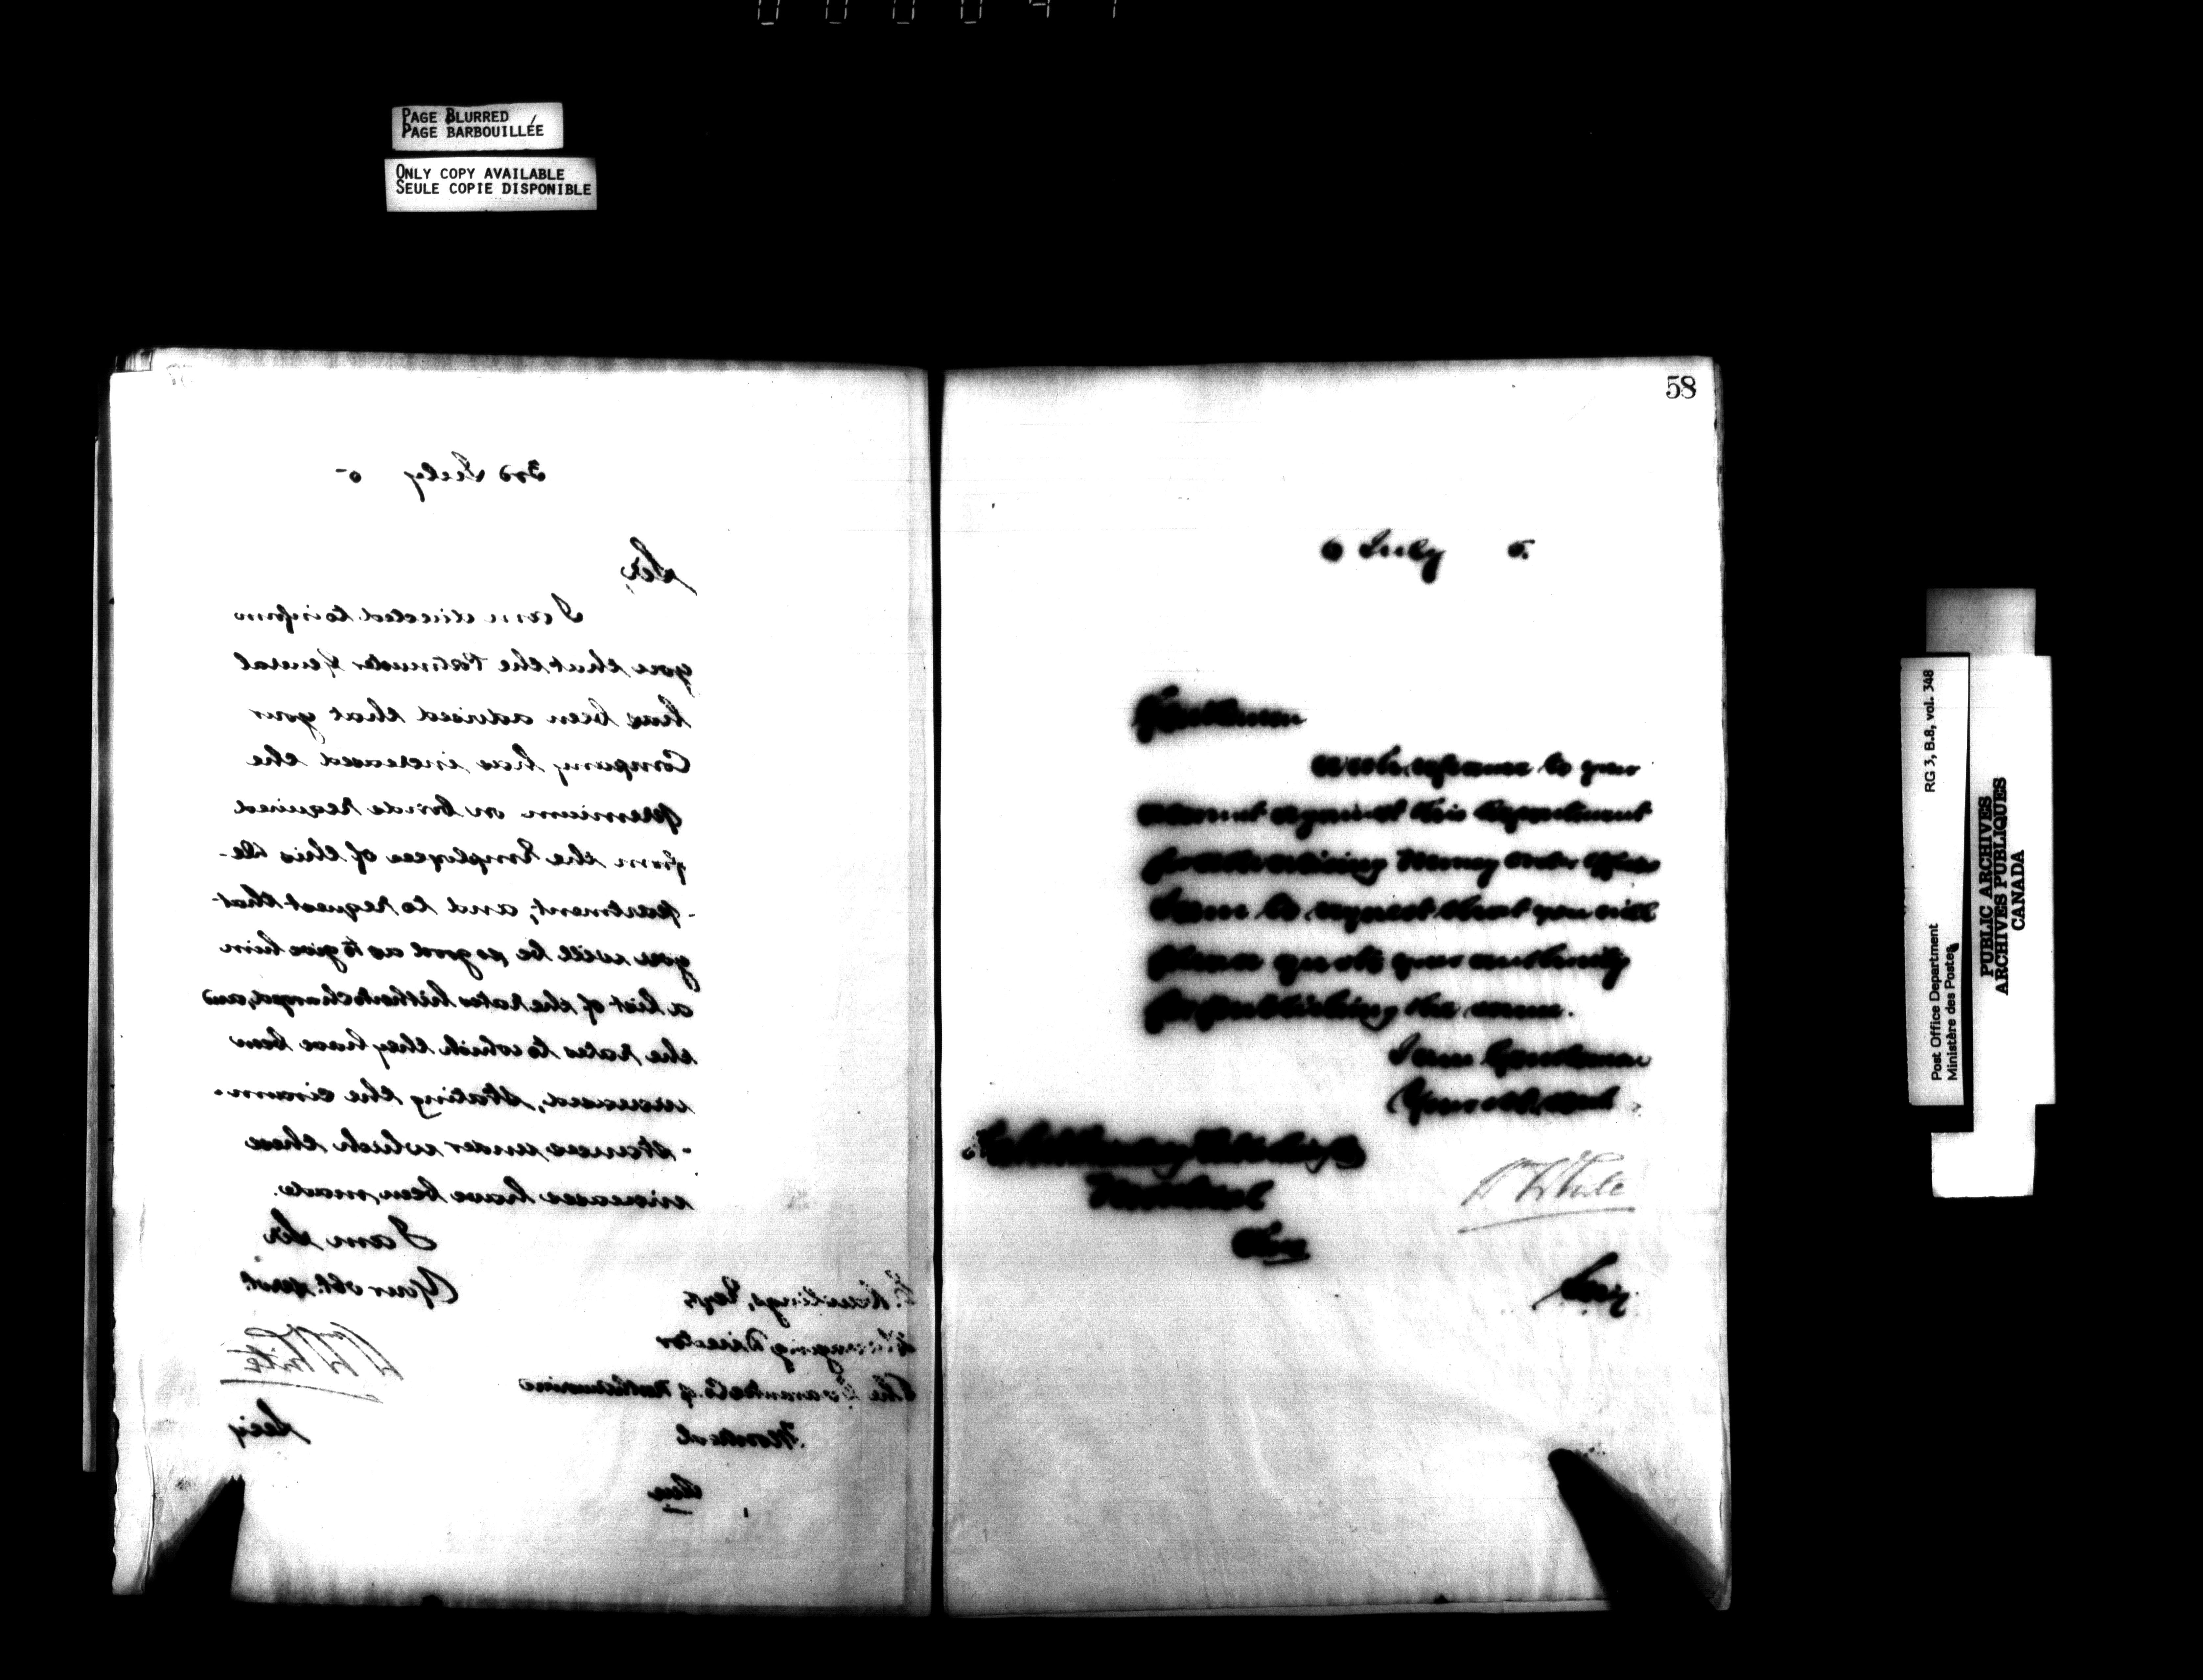 PAGE BLURRED
PAGE BARBOUILLÉE
ONLY COPY AVAILABLE
SEULE COPIE DISPONIBLE
3rd July 5
Sir,
I am directed to inform
you that the Postmaster General
has been advised that your
Company has increased the
premium on bonds required
from the Employees of this De-
-partment, and to request that
you will be so good as to give him
a list of the rates hitherto charged, and
the rates to which they have been
increased, stating the circum-
-stances under which these
increases have been made.
I am Sir
Your obt. servt.
W White
Secy
E. Rawlings, Esqr,
Managing Director
The Guarantee Co. of North America
Montreal
58
6 July 5.
Gentlemen
With reference to your
account against this Department
for advertising Money Order Offices
I am to request that you will
please quote your authority
for publishing the same.
I am Gentlemen
Your obt. servt.
Montreal
W White
Secy
RG 3, B.8, vol. 348
Post Office Department
Ministère des Postes
PUBLIC ARCHIVES
ARCHIVES PUBLIQUES
CANADA